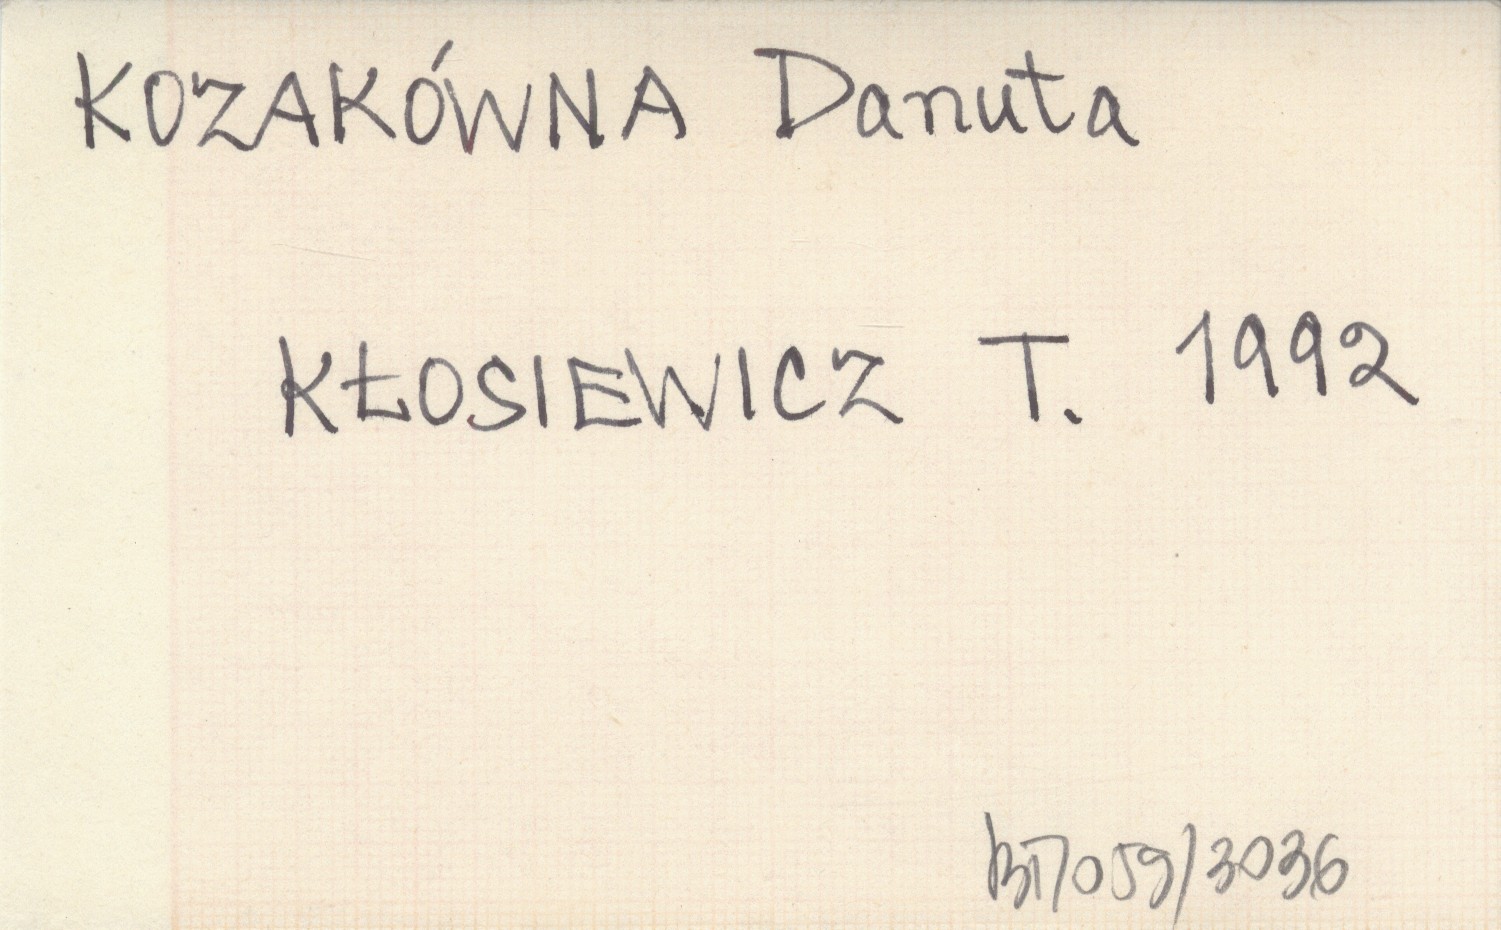 KOZAKÓWNA Danuta
KŁOSIEWICZ T. 1992
059/3036